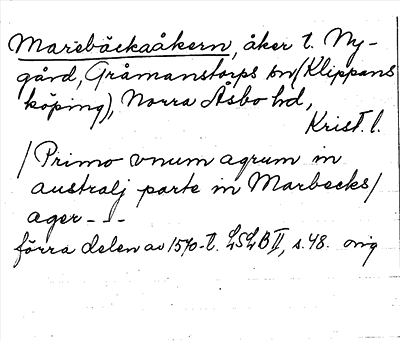 Marebäckaåkern, åker t. Ny-
gård, Gråmanstorps sn (Klippans
köping), Norra Åsbo hd,
Krist. l.
/Primo vnum agrum in
australj parte in Marbecks/
ager - - -
förra delen av 1570-t. LSLB II, s. 48. orig